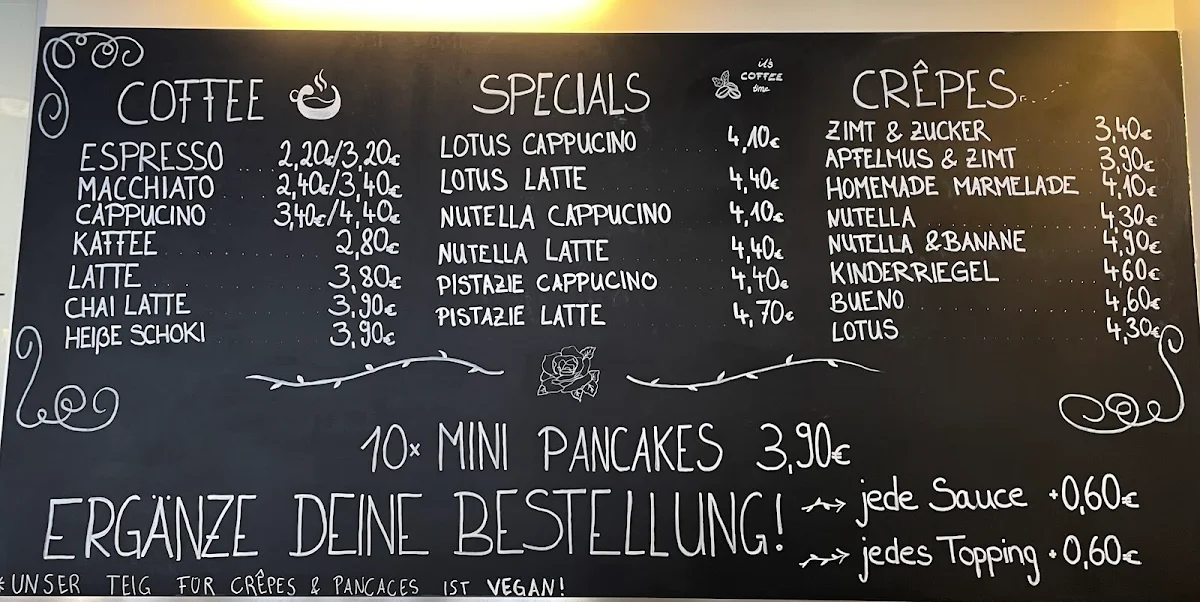 COFFEE
ESPRESSO 2,20€/3,20€
MACCHIATO 2,40€/3,40€
CAPPUCINO 3,40€/4,40€
KAFFEE 2,80€
LATTE 3,80€
CHAI LATTE 3,90€
HEIßE SCHOKI 3,90€
SPECIALS
it's
COFFEE
time
LOTUS CAPPUCINO 4,10€
LOTUS LATTE 4,40€
NUTELLA CAPPUCINO 4,10€
NUTELLA LATTE 4,40€
PISTAZIE CAPPUCINO 4,40€
PISTAZIE LATTE 4,70€
CRÊPES
ZIMT & ZUCKER 3,40€
APFELMUS & ZIMT 3,90€
HOMEMADE MARMELADE 4,10€
NUTELLA 4,30€
NUTELLA & BANANE 4,90€
KINDERRIEGEL 4,60€
BUENO 4,60€
LOTUS 4,30€
10x MINI PANCAKES 3,90€
ERGÄNZE DEINE BESTELLUNG!
jede Sauce +0,60€
jedes Topping +0,60€
*UNSER TEIG FÜR CRÊPES & PANCACES IST VEGAN!